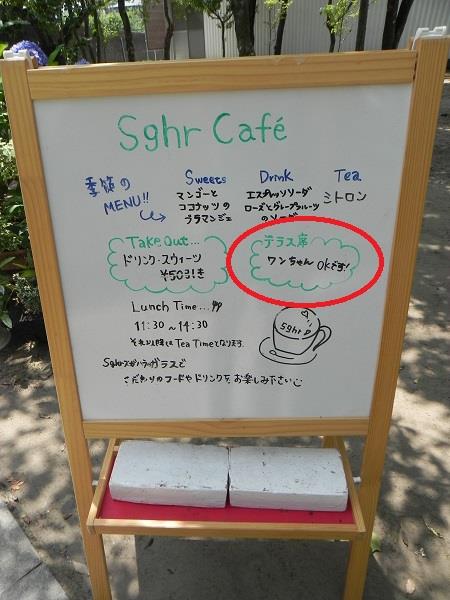 Sghr Café
季節の
MENU!!
Sweets
マンゴーと
ココナッツの
ブラマンジェ
Drink
エスプレッソソーダ
ローズとグレープフルーツ
のソーダ
Tea
シトロン
Take Out...
ドリンク・スウィーツ
¥50引き
テラス席
ワンちゃん OKです!
Lunch Time...
11:30 ~ 14:30
それ以降は Tea Timeとなります。
Sghr
こだわりのフードやドリンクを、お楽しみ下さい
Sghr